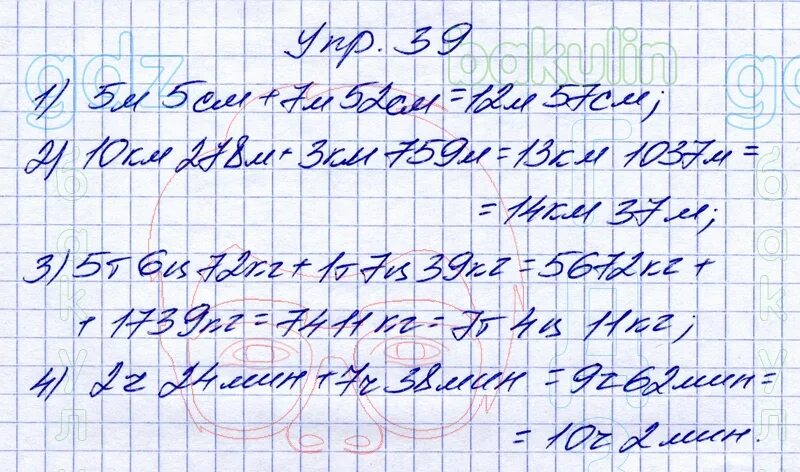 Упр. 39
gdz bakulin
1) 5м 5см + 7м 52см = 12м 57см;
2) 10км 278м + 3км 759м = 13км 1037м =
= 14км 37м;
3) 5т 6ц 72кг + 1т 7ц 39кг = 5672кг +
+ 1739кг = 7411кг = 7т 4ц 11кг;
4) 2ч 24мин + 7ч 38мин = 9ч 62мин =
= 10ч 2мин.